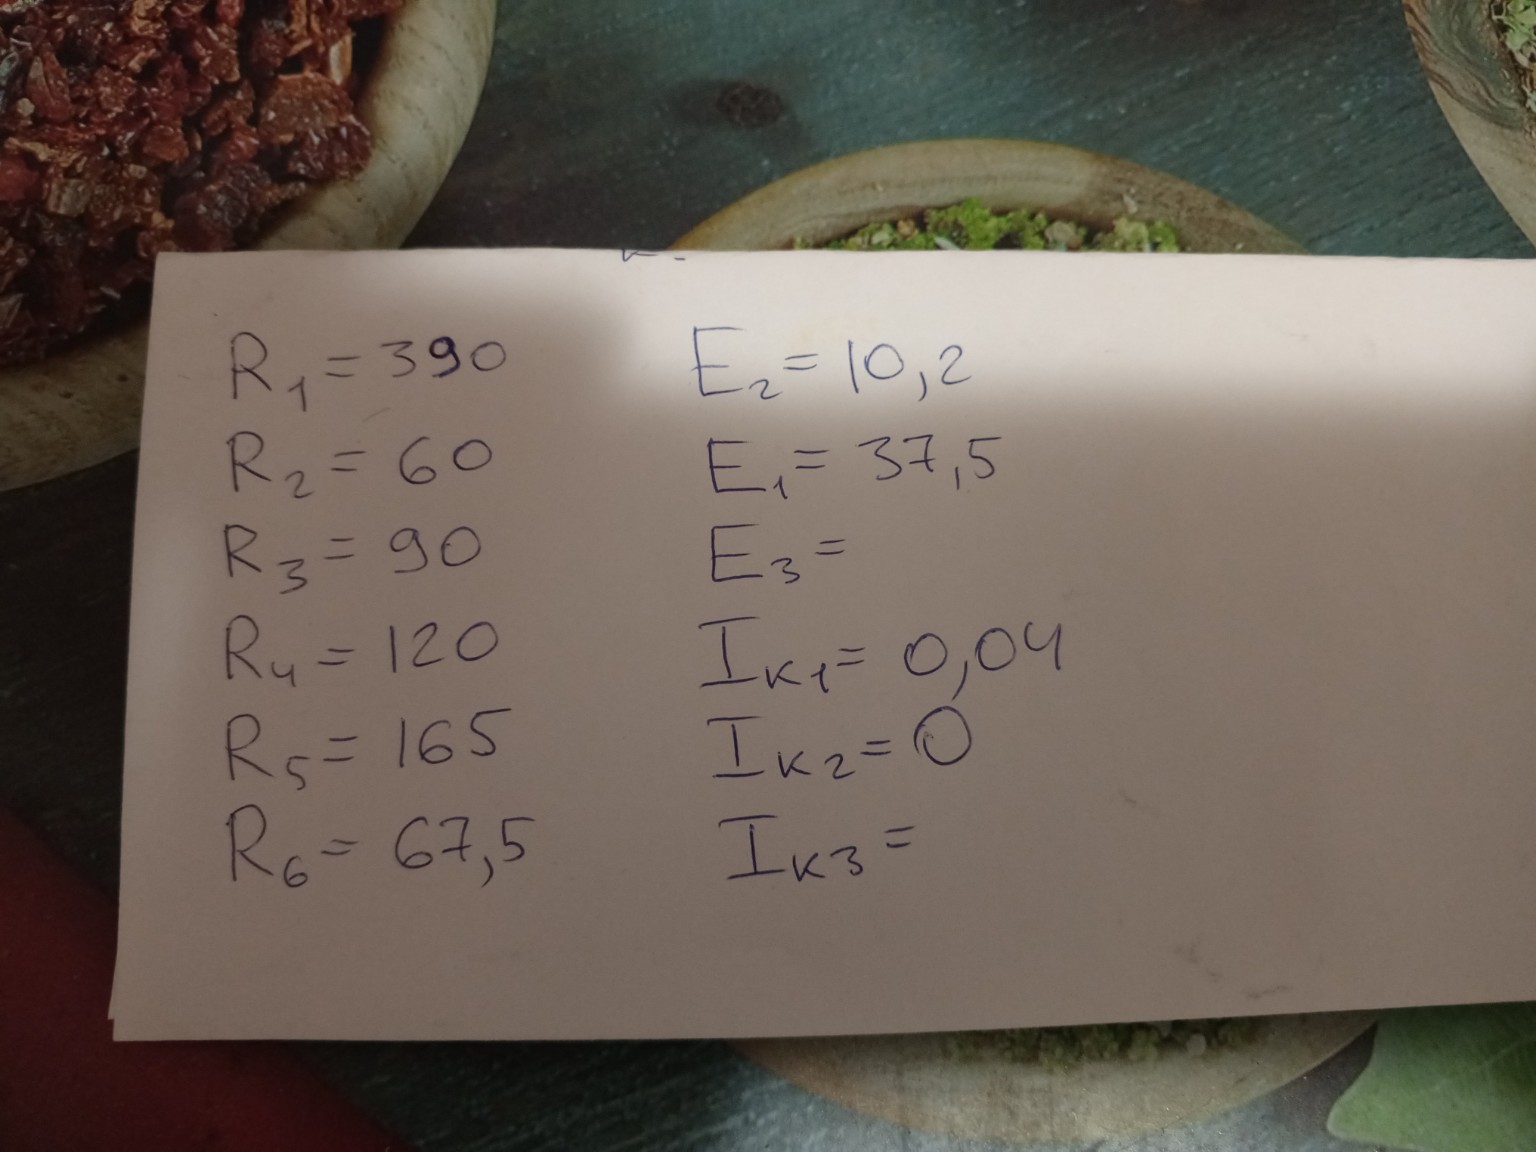 R₁ = 390
R₂ = 60
R₃ = 90
R₄ = 120
R₅ = 165
R₆ = 67,5
E₂ = 10,2
E₁ = 37,5
E₃ =
Iк₁ = 0,04
Iк₂ = 0
Iк₃ =